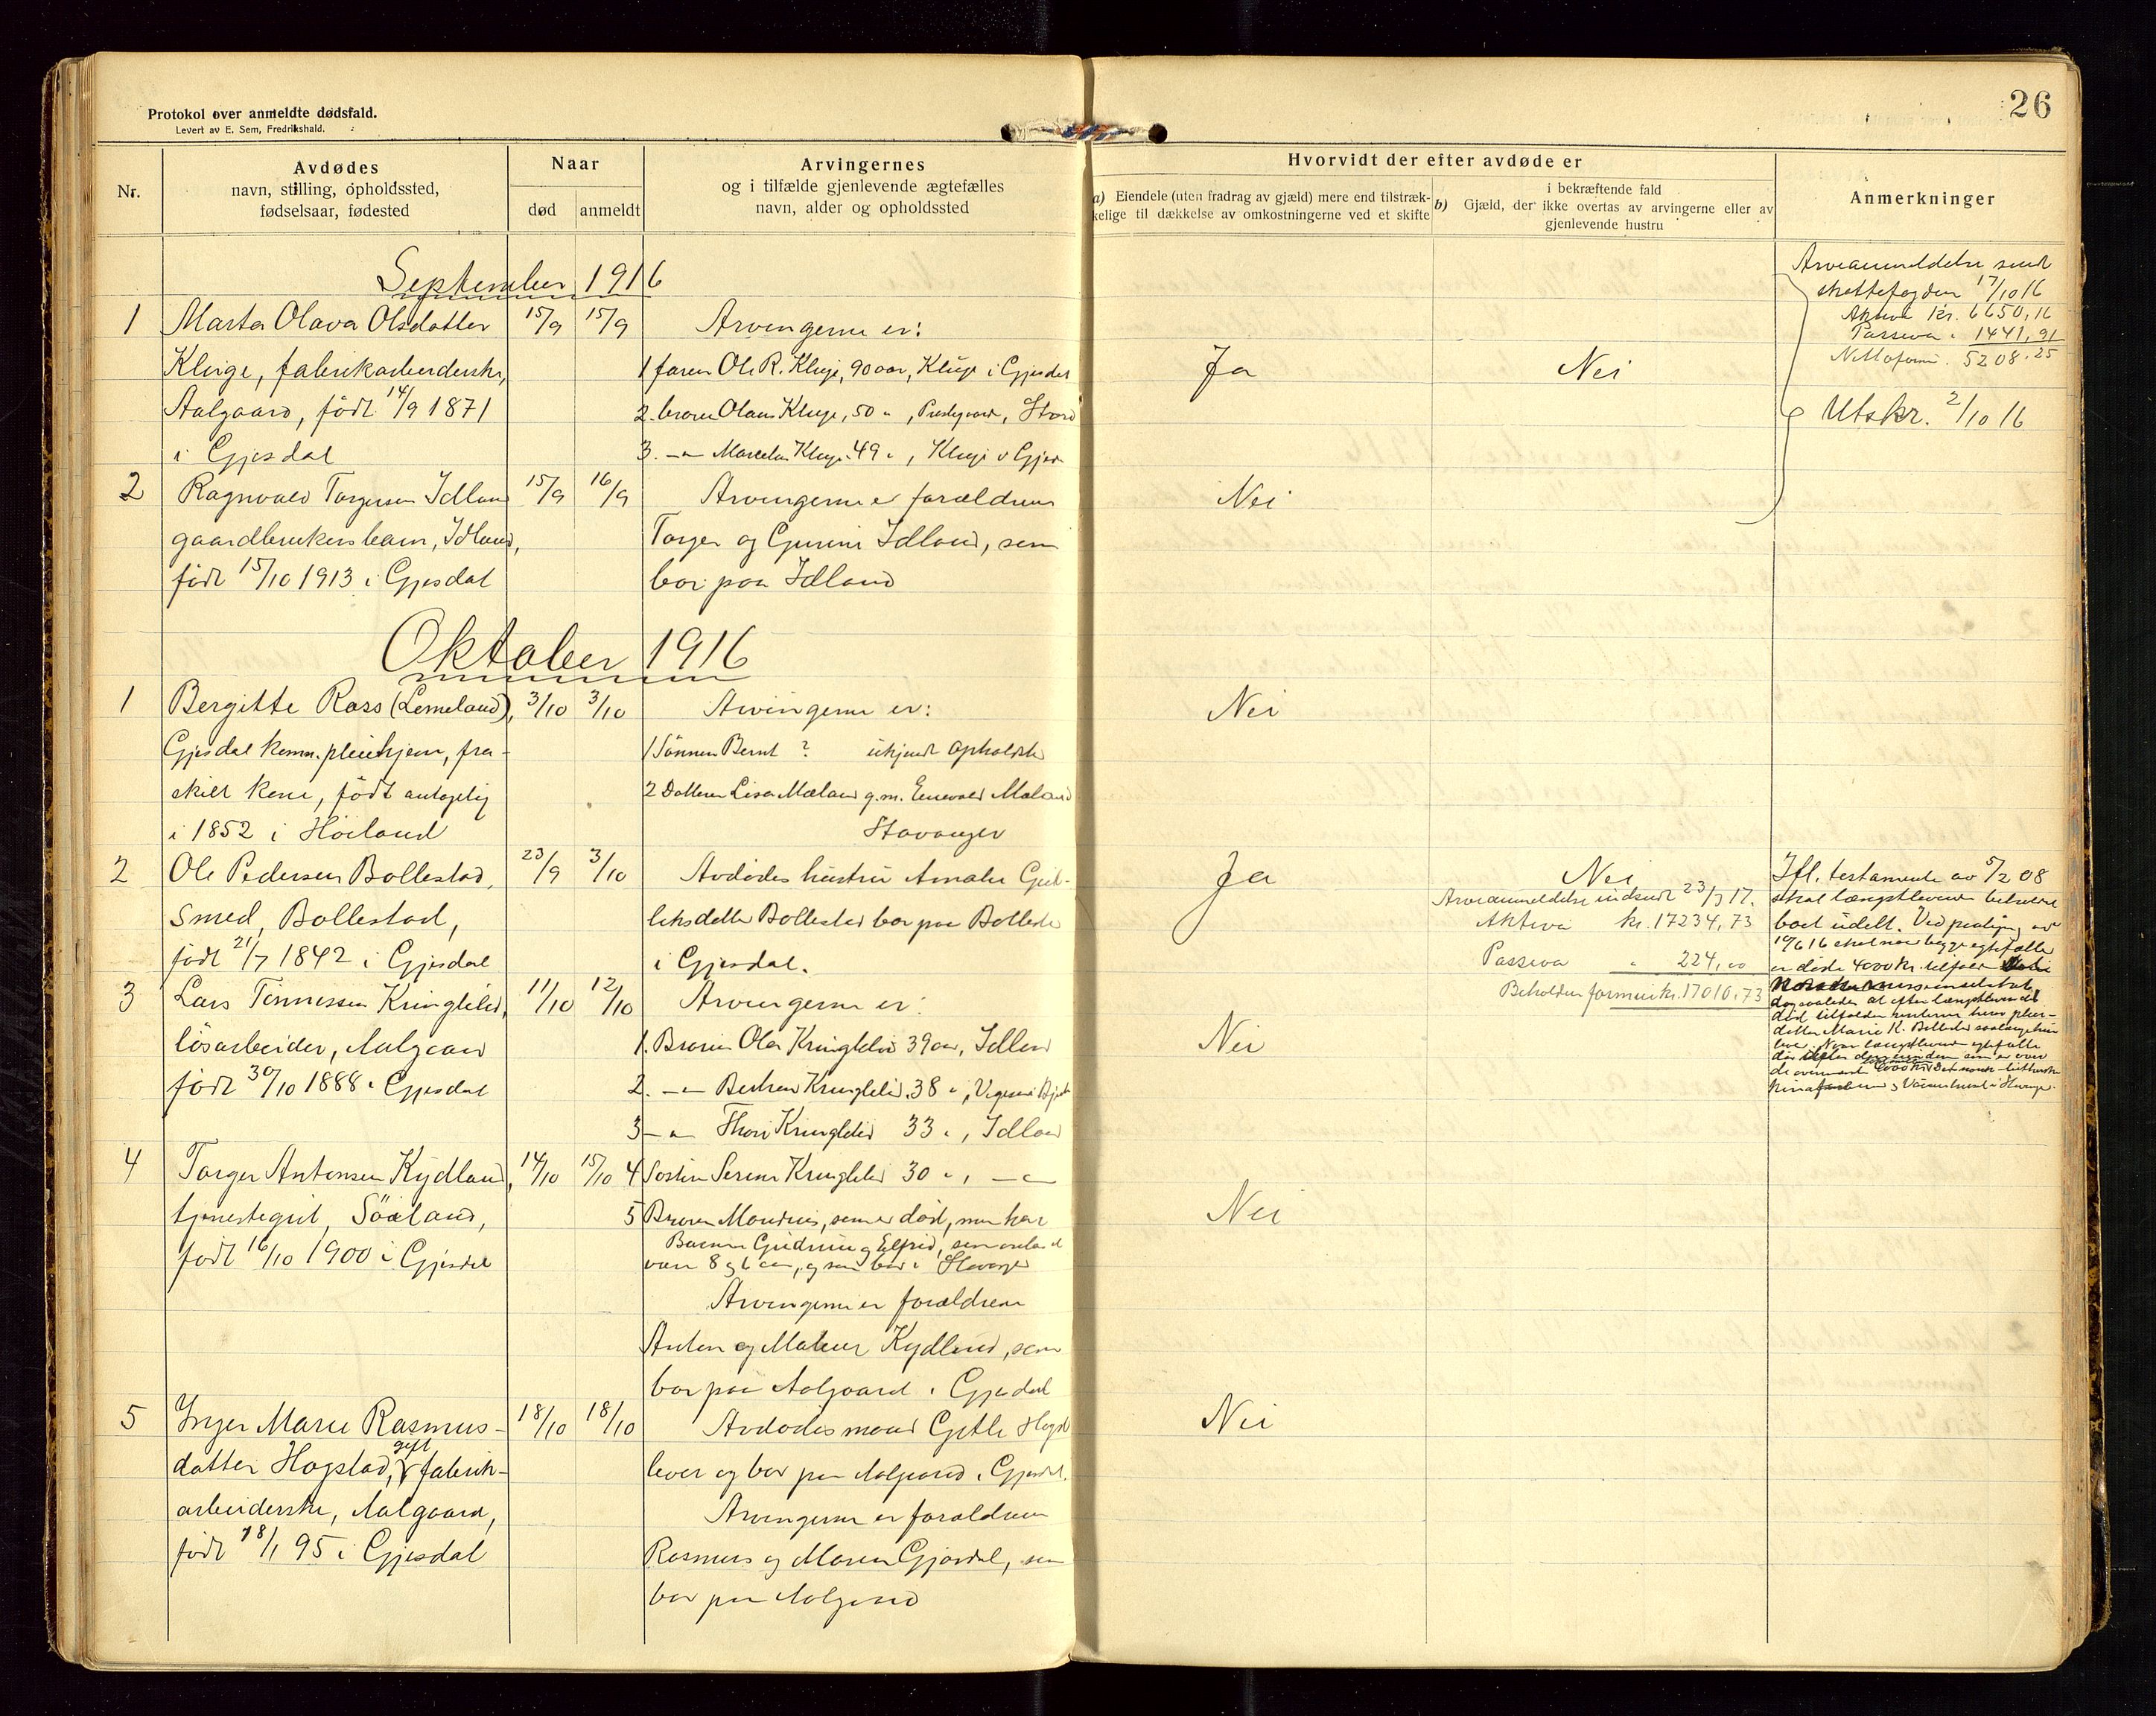 Protokol over anmeldte dødsfald.
Levert av E. Sem, Fredrikshald.
26
Nr.
Avdødes
navn, stilling, opholdssted,
fødselsaar, fødested
Naar
død
anmeldt
Arvingernes
og i tilfælde gjenlevende ægtefælles
navn, alder og opholdssted
Hvorvidt der efter avdøde er
a) Eiendele (uten fradrag av gjæld) mere end tilstræk-
kelige til dækkelse av omkostningerne ved et skifte
i bekræftende fald
b) Gjæld, der ikke overtas av arvingerne eller av
gjenlevende hustru
Anmerkninger
September 1916
1 Marta Olava Olsdatter 15/9 15/9 Arvingerne er:
Kluge, fabrikarbeiderske, 1 faren Ole R. Kluge, 90 aar, Kluge i Gjesdal Ja Nei
Aalgaard, født 14/9 1871 2. broren Olaus Kluge, 50 " , Prestegaard,
i Gjesdal 3. -"- Kluge 49 " , Kluge i Gjesd
Arveanmeldelse sendt
skattefogden 17/10 16
Aktiva kr. 6650,16
Passiva " 1441,91
Nettoform. 5208.25
Utskr. 2/10 16
2 Ragnvald Torgersen Idland 15/9 16/9 Arvingerne er forældrene Nei
gaardbrukers barn, Idland, Torger og Gurine Idland, som
født 15/10 1913 i Gjesdal bor paa Idland
Oktober 1916
1 Bergitte Ross (Lemeland), 3/10 3/10 Arvingerne er: Nei
Gjesdal komm. pleiehjem, fra- 1 Sønnen Bernt ? ukjendt opholdste
skilt kone, født antagelig 2 Datteren Lisa Mæland g.m. Enevald Mæland
i 1852 i Høiland Stavanger
2 Ole Pedersen Bollestad, 23/9 3/10 Avdødes hustru Amalie Gul- Ja Nei
smed, Bollestad, leksdatter Bollestad bor paa Bollestad
født 21/7 1842 i Gjesdal i Gjesdal.
Arveanmeldelse indsendt 23/3 17.
Aktiva kr. 17234,73
Passiva " 224,00
Beholden formue kr. 17010,73
Ifl. testamente av 5/2 08
skal længstlevende beholde
boet udelt. Ved
19/6 16 skal naar begge egtefæller
er døde 4000 kr. tilfalde
dog saaledes at efter længstlevendes
død tilfalder renterne heraf pleie-
datter Marie K. Bollestad saalænge hun
lever. Naar længstlevende egtefælle
3 Lars Tønnessen Kringleli, 11/10 12/10 Arvingerne er:
løsarbeider, Aalgaard 1. Broren Ola Kringleli 39 aar, Idland Nei
født 30/10 1888 i Gjesdal 2. -"- Kringleli 38 " ,
3 -"- Kringleli 33 " , Idland
4 Søsteren Serine Kringleli 30 " , -"-
5 Broren som er død, men har
Barnene Gudrun og Elfrid, som
være 8 og 6 aar, og som bor i Stavanger
4 Torger Antonsen Kydland, 14/10 15/10 Nei
tjenestegut, Søiland,
født 16/10 1900 i Gjesdal
Arvingerne er forældrene
Anton og Malene Kydland, som
bor paa Aalgaard i Gjesdal
5 Inger Marie Rasmus- 18/10 18/10 Avdødes mand Hogst Nei
datter Hogstad, gift fabrik- lever og bor paa Aalgaard i Gjesdal.
arbeiderske, Aalgaard, Arvingerne er forældrene
født 18/1 95 i Gjesdal Rasmus og Maren Gjesdal, som
bor paa Aalgaard